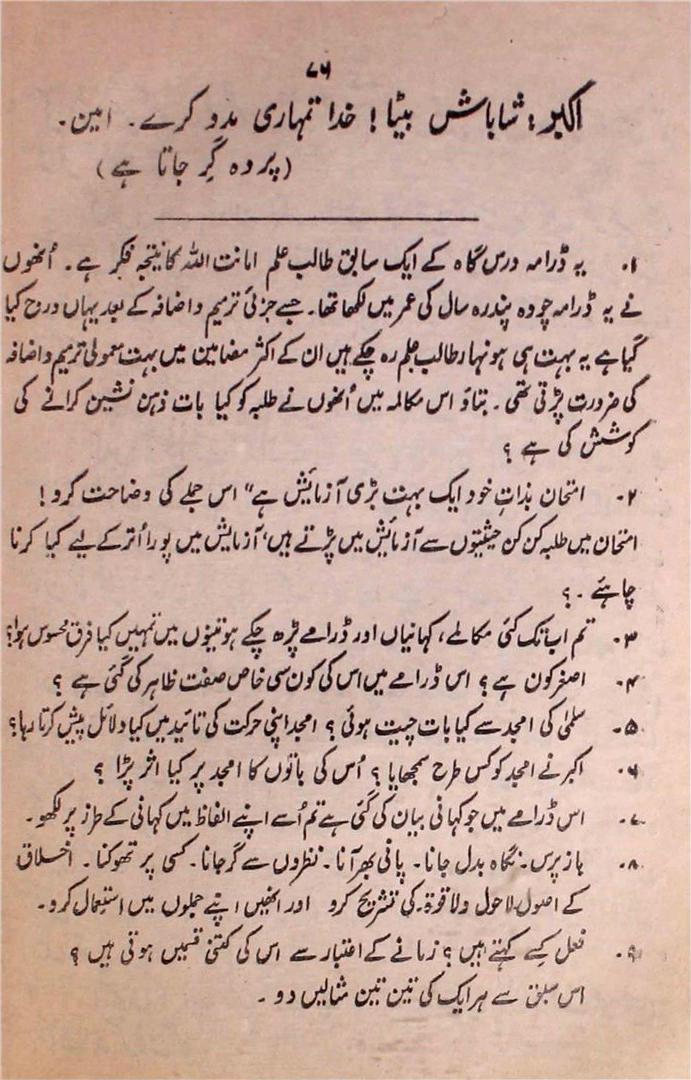 ۷۶
اکبر: شاباش بیٹا! خدا تمہاری مدد کرے۔ امین۔
(پردہ گر جاتا ہے)
۱۔ یہ ڈرامہ درس گاہ کے ایک سابق طالب علم امانت اللہ کا نتیجہ فکر ہے۔ اُنھوں
نے یہ ڈرامہ چودہ پندرہ سال کی عمر میں لکھا تھا۔ جسے جزئی ترمیم و اضافہ کے بعد یہاں درج کیا
گیا ہے یہ بہت ہی ہونہار طالب علم رہ چکے ہیں ان کے اکثر مضامین میں بہت معمولی ترمیم و اضافہ
کی ضرورت پڑتی تھی۔ بتاؤ اس مکالمہ میں اُنھوں نے طلبہ کو کیا بات ذہن نشین کرانے کی
کوشش کی ہے؟
۲۔ امتحان بذاتِ خود ایک بہت بڑی آزمائش ہے" اس جملے کی وضاحت کرو!
امتحان میں طلبہ کن کن حیثیتوں سے آزمائش میں پڑتے ہیں، آزمایش میں پورا اُترکے لیے کیا کرنا
چاہئے۔؟
۳۔ تم اب تک کئی مکالمے، کہانیاں اور ڈرامے پڑھ چکے ہو تینوں میں تمہیں کیا فرق محسوس ہوا؟
۴۔ اصغر کون ہے؟ اس ڈرامے میں اس کی کون سی خاص صفت ظاہر کی گئی ہے؟
۵۔ سلمٰی کی امجد سے کیا بات چیت ہوئی؟ امجد اپنی حرکت کی تائید میں کیا دلائل پیش کرتا رہا؟
۶۔ اکبر نے امجد کو کس طرح سمجھایا؟ اُس کی باتوں کا امجد پر کیا اثر پڑا؟
۷۔ اس ڈرامے میں جو کہانی بیان کی گئی ہے تم اُسے اپنے الفاظ میں کہانی کے طرز پر لکھو۔
۸۔ بازپرس۔ نگاہ بدل جانا۔ پانی بھر آنا۔ نظروں سے گر جانا۔ کسی پر تھوکنا۔ اخلاق
کے اصول۔ لاحول ولا قوۃ۔ کی تشریح کرو اور انھیں اپنے جملوں میں استعمال کرو۔
۹۔ فعل کسے کہتے ہیں؟ زمانے کے اعتبار سے اس کی کتنی قسمیں ہوتی ہیں؟
اس سبق سے ہر ایک کی تین تین مثالیں دو۔